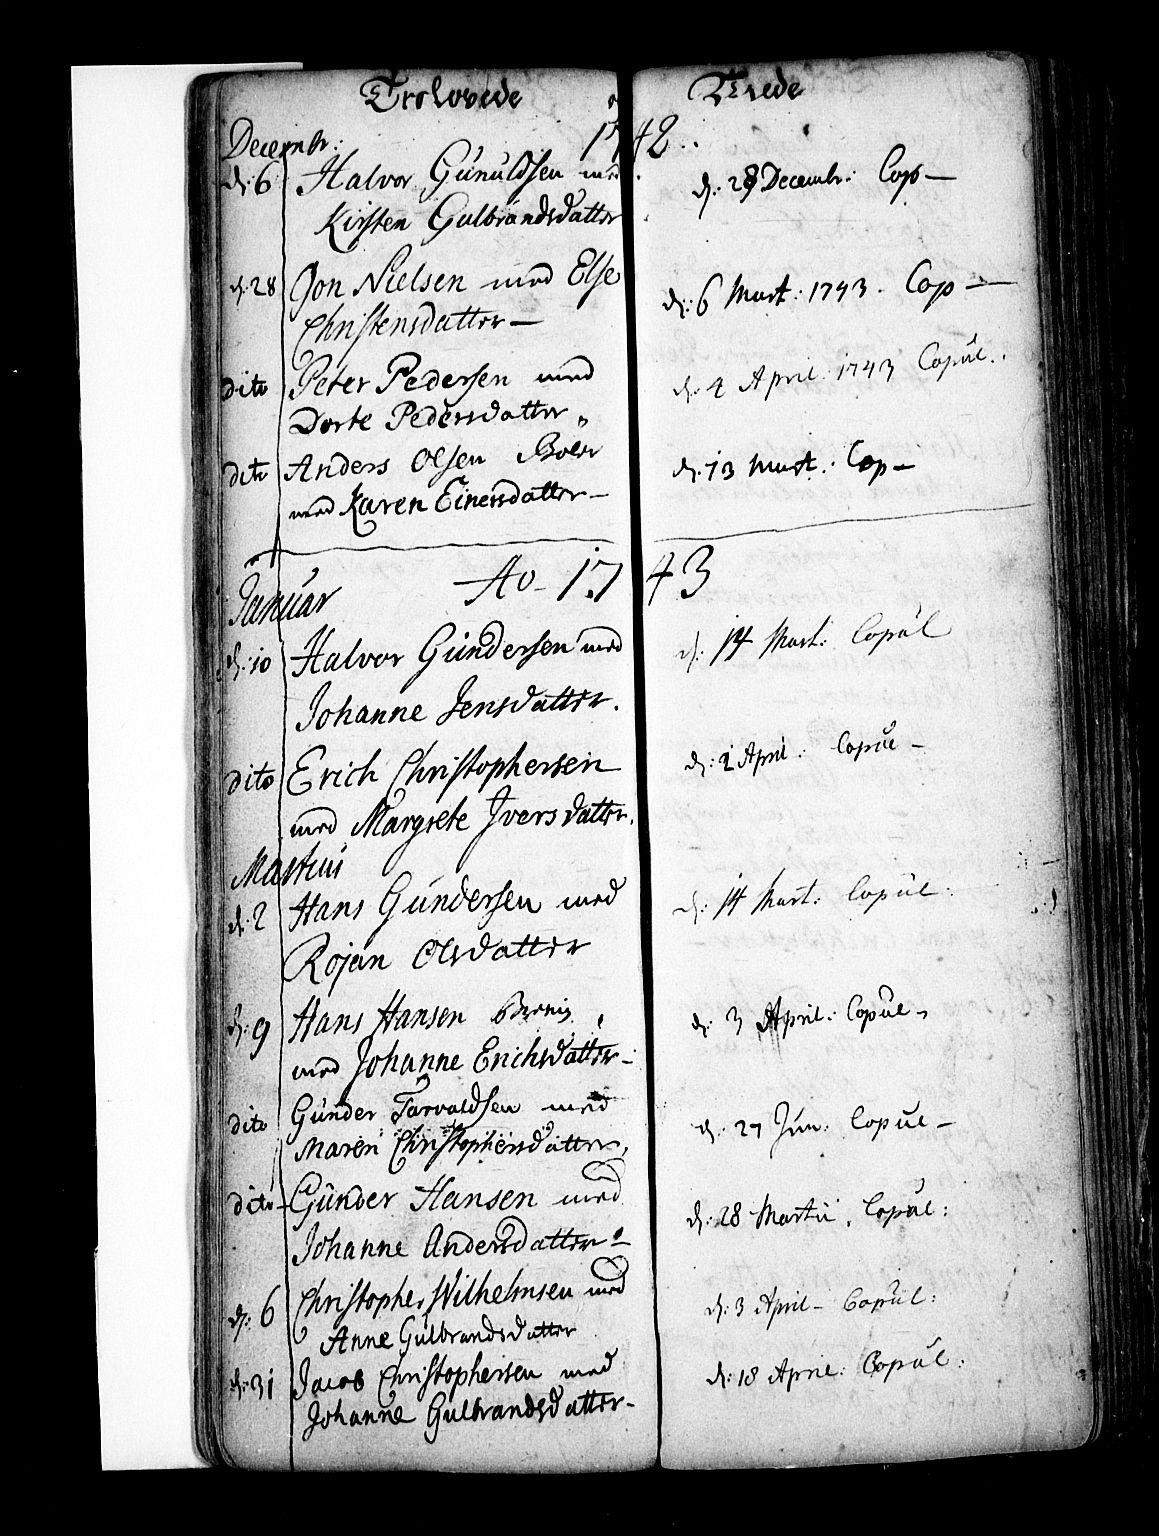 Trolovede Viede
Decembr: 1742.
d: 6 Halvor Gunuldsen med d: 28 Decembr: Cop—
Kirsten Gulbrandsdatter
d: 28 Jon Nielsen med Else d: 6 Mart: 1743. Cop—
Christensdatter—
dito Peter Pedersen med d: 2 April: 1743 Copul.
Dorte Pedersdatter
dito Anders Olsen d: 13 Mart: Cop—
med Karen Einersdatter—
Januar Ao- 1743
d: 10 Halvor Gundersen med d: 14 Mart: Copul
Johanne Jensdatter.
dito Erich Christophersen d: 2 April: Copul—
med Margrete Iversdatter.
Martius
d: 2 Hans Gundersen med d: 14 Mart: Copul.
Rojan Olsdatter
d: 9 Hans Hansen d: 3 April: Copul-
med Johanne Erichsdatter-
dito Gunder Tarvaldsen med d: 27 Jun: Copul—
Maren Christophersdatter,
dito- Gunder Hansen med d: 28 Martii. Copul:
Johanne Andersdatter-
d: 6 Christopher Wilhelmsen med d: 3 April- Copul:
Anne Gulbrandsdatter
d: 31 Jacob Christophersen med d: 18 April: Copul:
Johanne Gulbrandsdatter-